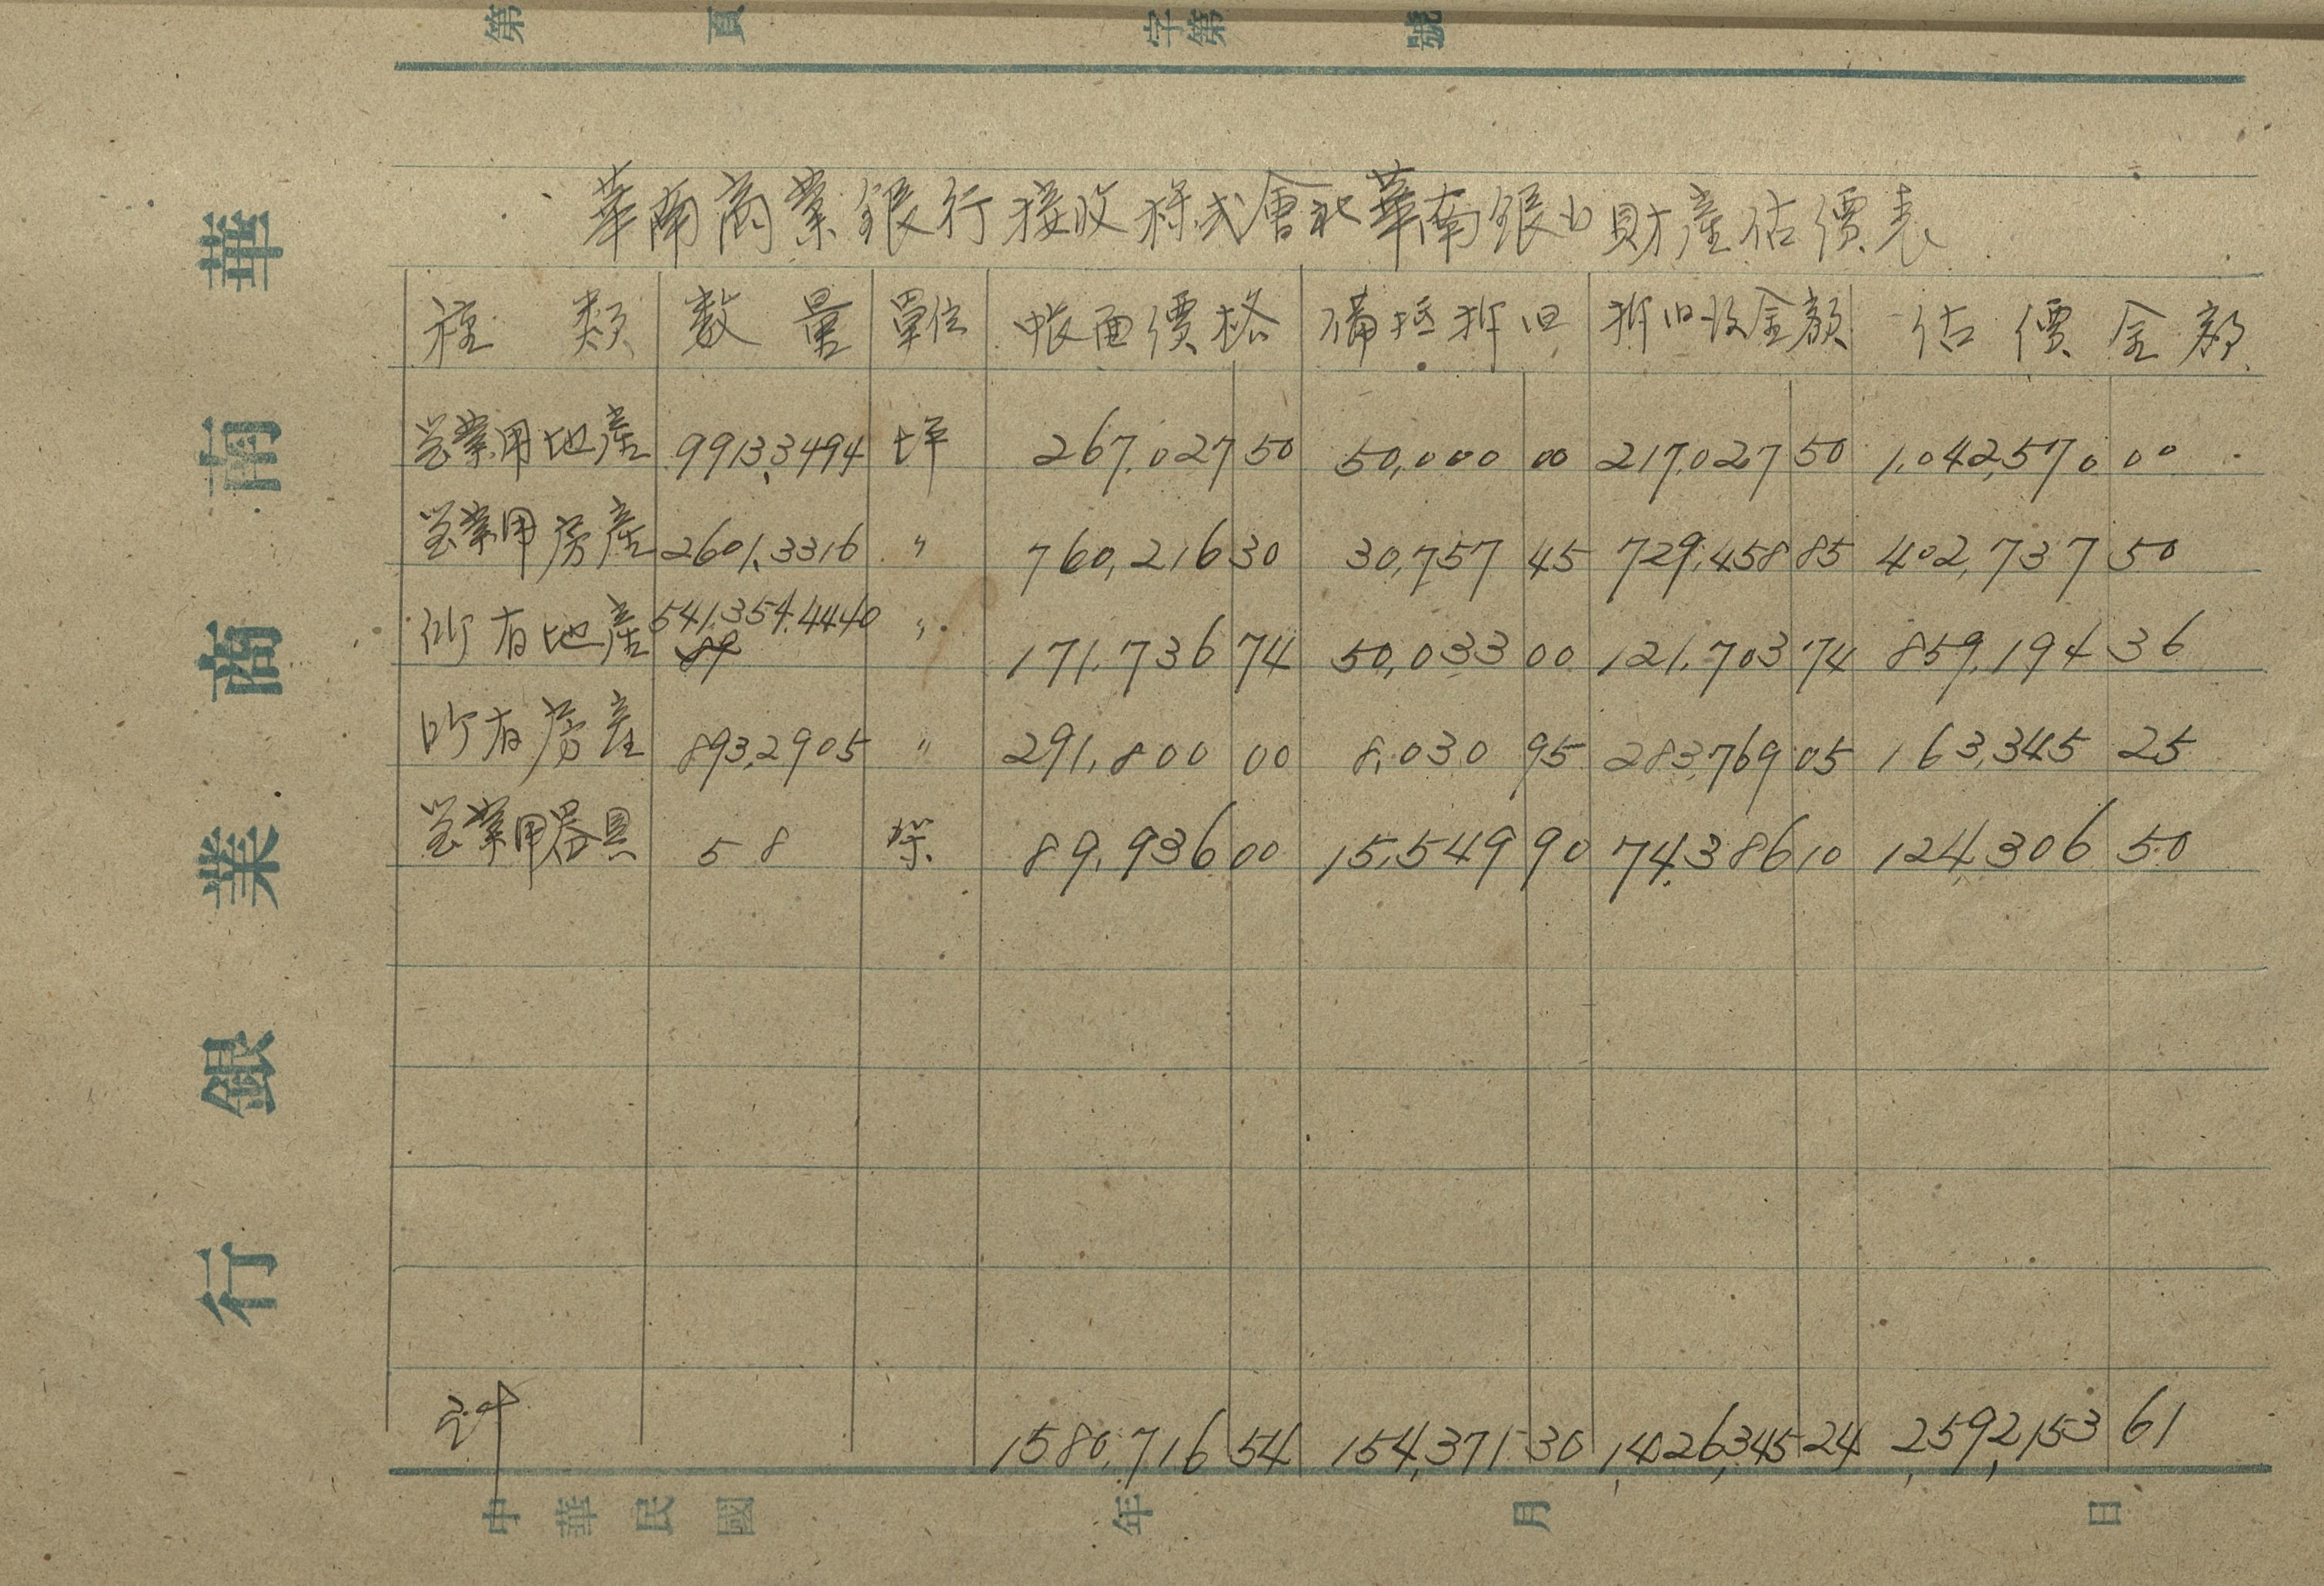 第 頁 字第 號
華南商業銀行
華南商業銀行接收株式會社華南銀行財產估價表
種類 數量 單位 帳面價格 備抵折旧 折旧后金額 估價金額
営業用地產 9913.3494 坪 267,027 50 50,000 00 217,027 50 1,042,570 00
営業用房產 2601.3316 〃 760,216 30 30,757 45 729,458 85 402,737 50
所有地產 541,354.4440 〃 171,736 74 50,033 00 121,703 74 859,194 36
89
所有房產 893.2905 〃 291,800 00 8,030 95 283,769 05 163,345 25
営業用器具 58 89,936 00 15,549 90 74,386 10 124,306 50
合計 1580,716 54 154,371 30 1,426,345 24 2,592,153 61
中華民國 年 月 日